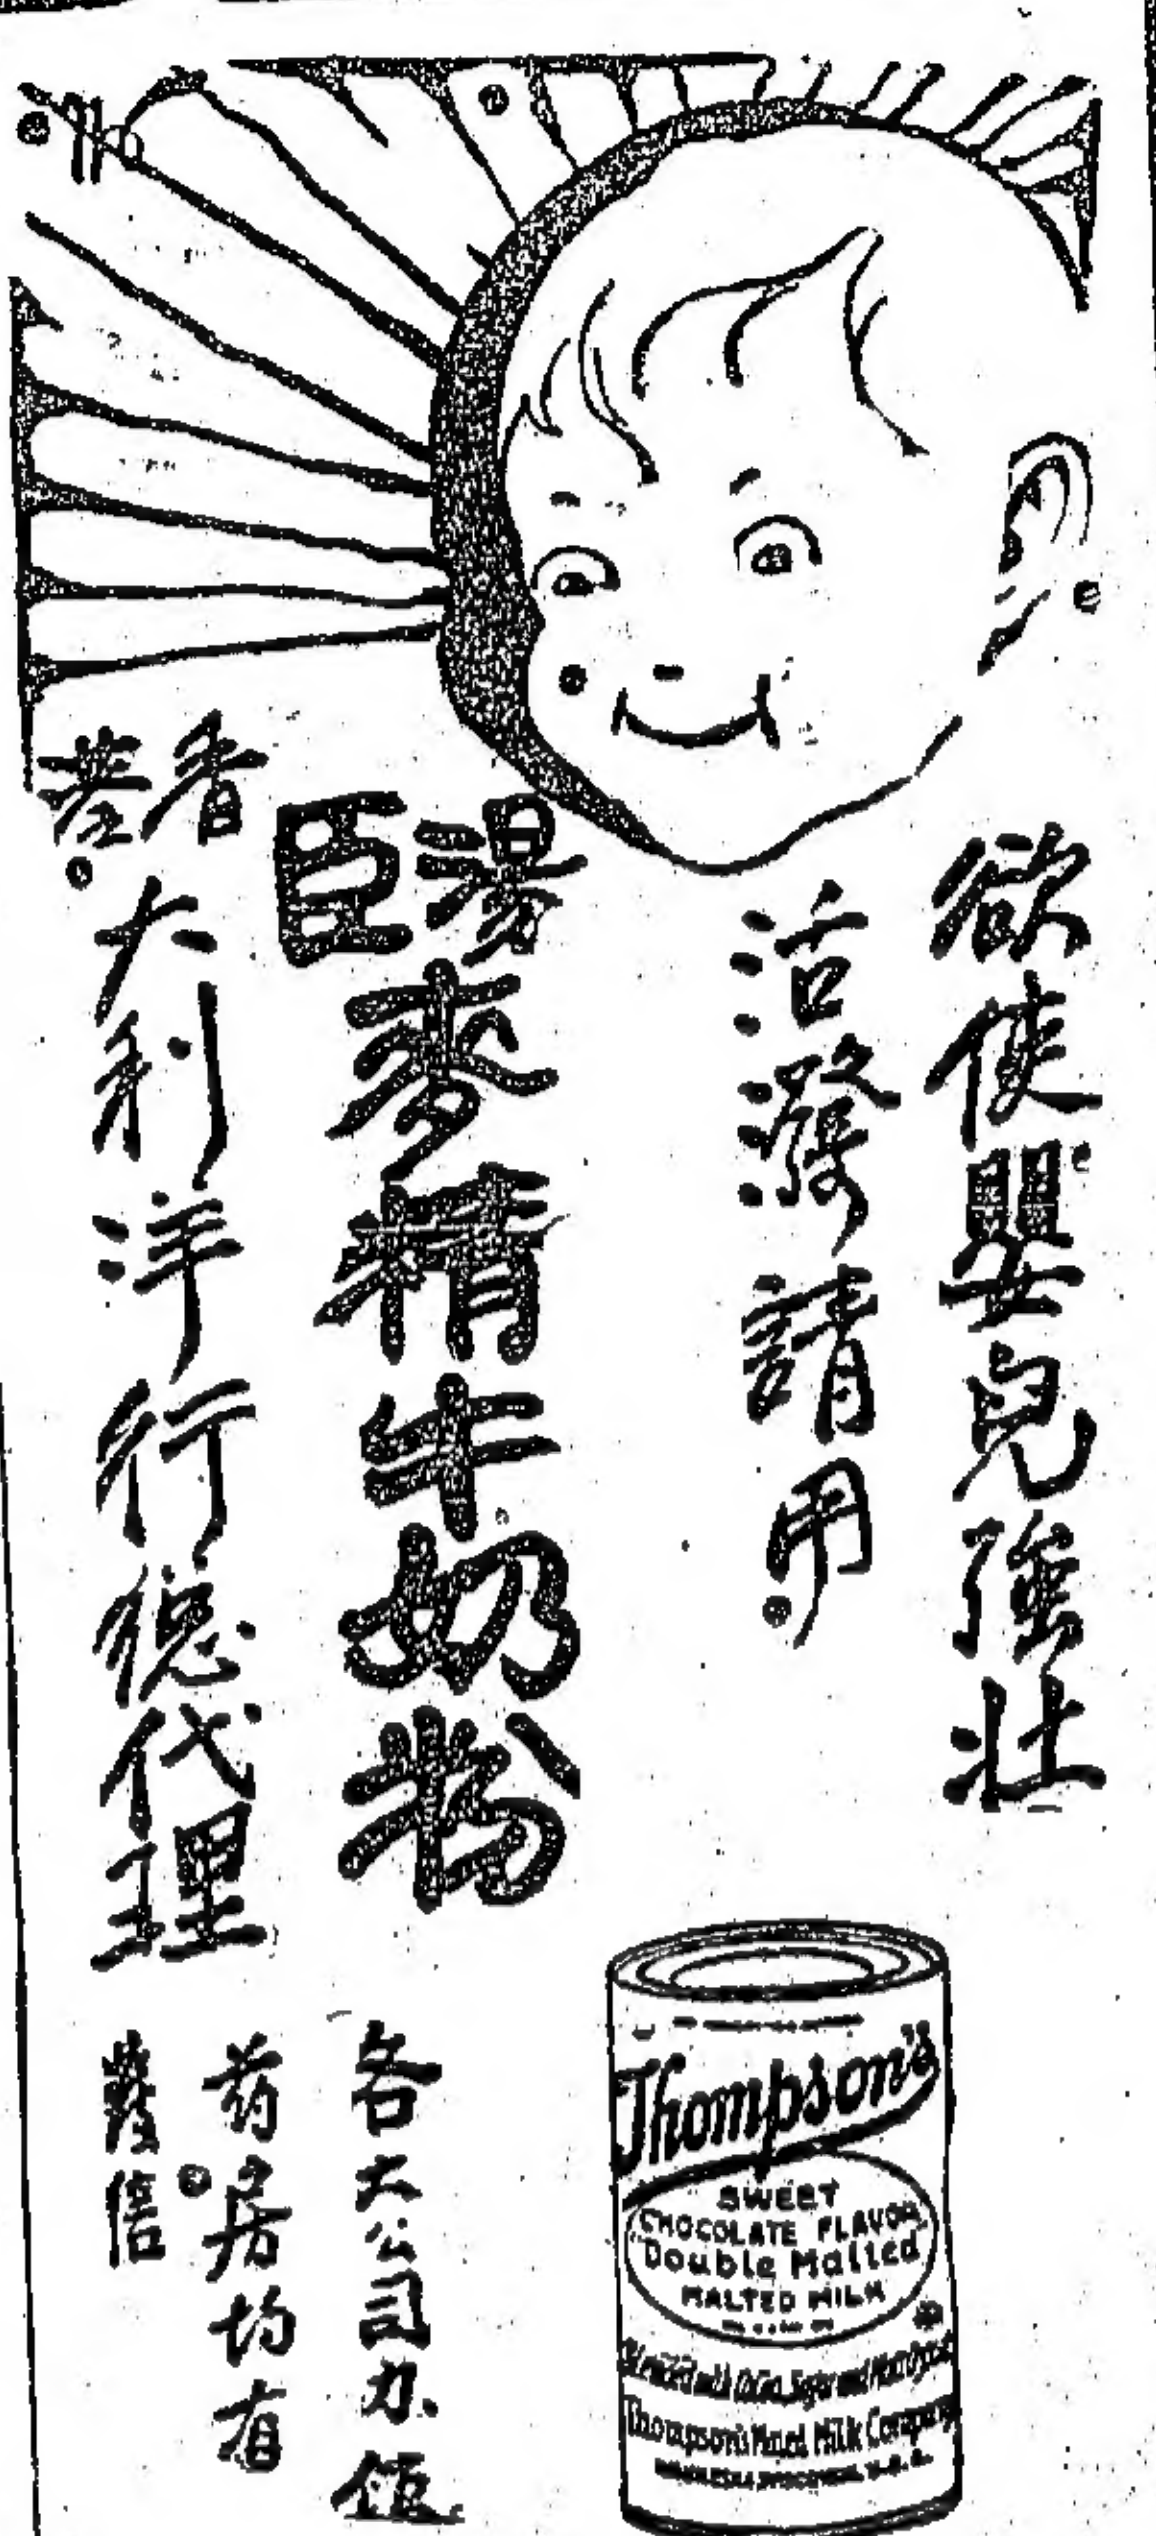 欲使嬰兒強壯
活潑請用
湯臣
麥精牛奶粉
香港
大利洋行總代理
各大公司办館
葯房均有
發售
Thompson's
SWEET
CHOCOLATE FLAVOR
"Double Malted"
MALTED MILK
Thompson's Malted Milk Company